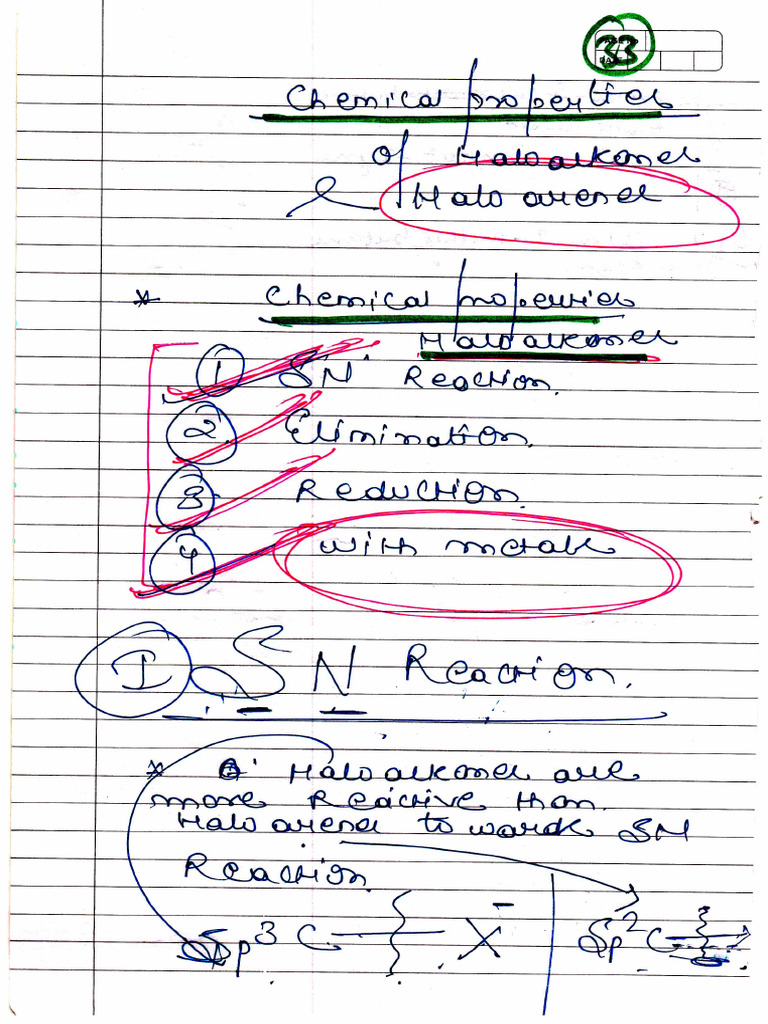 33
Chemical properties
of Haloalkanes
& Haloarenes
* Chemical properties
Haloalkanes
1 SN Reaction.
2 Elimination.
3 Reduction.
4 with metals
I SN Reaction.
* Q. Haloalkanes are
more Reactive than
Haloarenes towards SN
Reaction.
Sp³ C X⁻ Sp² C